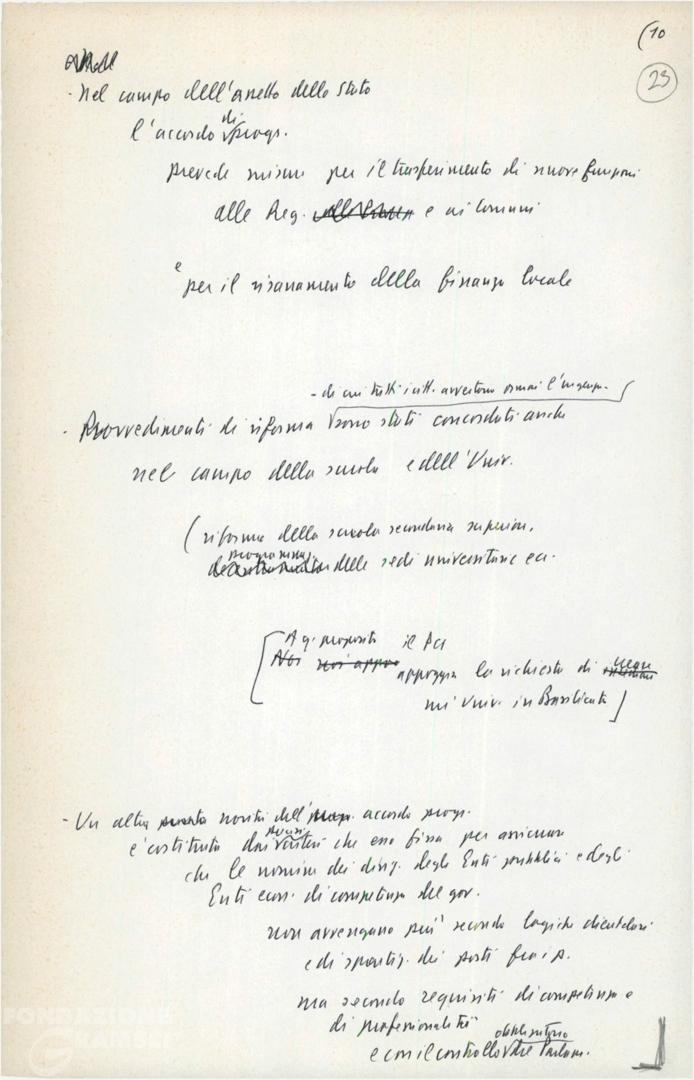 (10
23
- Nel campo dell'assetto dello Stato
l'accordo di progr.
prevede misure per il trasferimento di nuove funzioni
alle Reg. e ai Comuni
e per il risanamento della finanza locale
- di cui tutti i citt. avvertono ormai l'urgenza -
- Provvedimenti di riforma sono stati concordati anche
nel campo della scuola e dell'Univ.
(riforma della scuola secondaria superiore,
programmaz.
delle sedi universitarie ecc.
[A q. proposito il PCI
appoggia la richiesta di creare
un'Univ. in Basilicata]
- Un'altra novità dell'accordo progr.
è costituita dai precisi criteri che esso fissa per assicurare
che le nomine dei dirig. degli Enti pubblici e degli
Enti econ. di competenza del gov.
non avvengano più secondo logiche clientelari
e di spartiz. dei posti fra i p.
ma secondo requisiti di competenza e
di professionalità
e con il controllo obbligatorio del Parlam.
FONDAZIONE
GRAMSCI